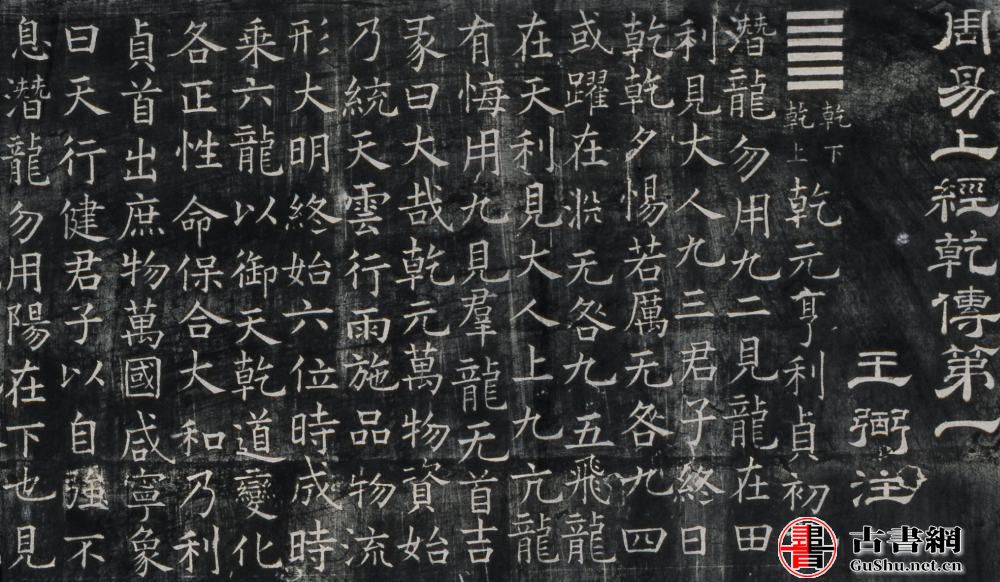 周易上經乾傳第一
王弼注
乾下
乾上
乾元亨利貞初
潛龍勿用九二見龍在田
利見大人九三君子終日
乾乾夕惕若厲无咎九四
或躍在淵无咎九五飛龍
在天利見大人上九亢龍
有悔用九見羣龍无首吉
彖曰大哉乾元萬物資始
乃統天雲行雨施品物流
形大明終始六位時成時
乘六龍以御天乾道變化
各正性命保合大和乃利
貞首出庶物萬國咸寧象
曰天行健君子以自強不
息潛龍勿用陽在下也見
書
古書網
GuShu.net.cn